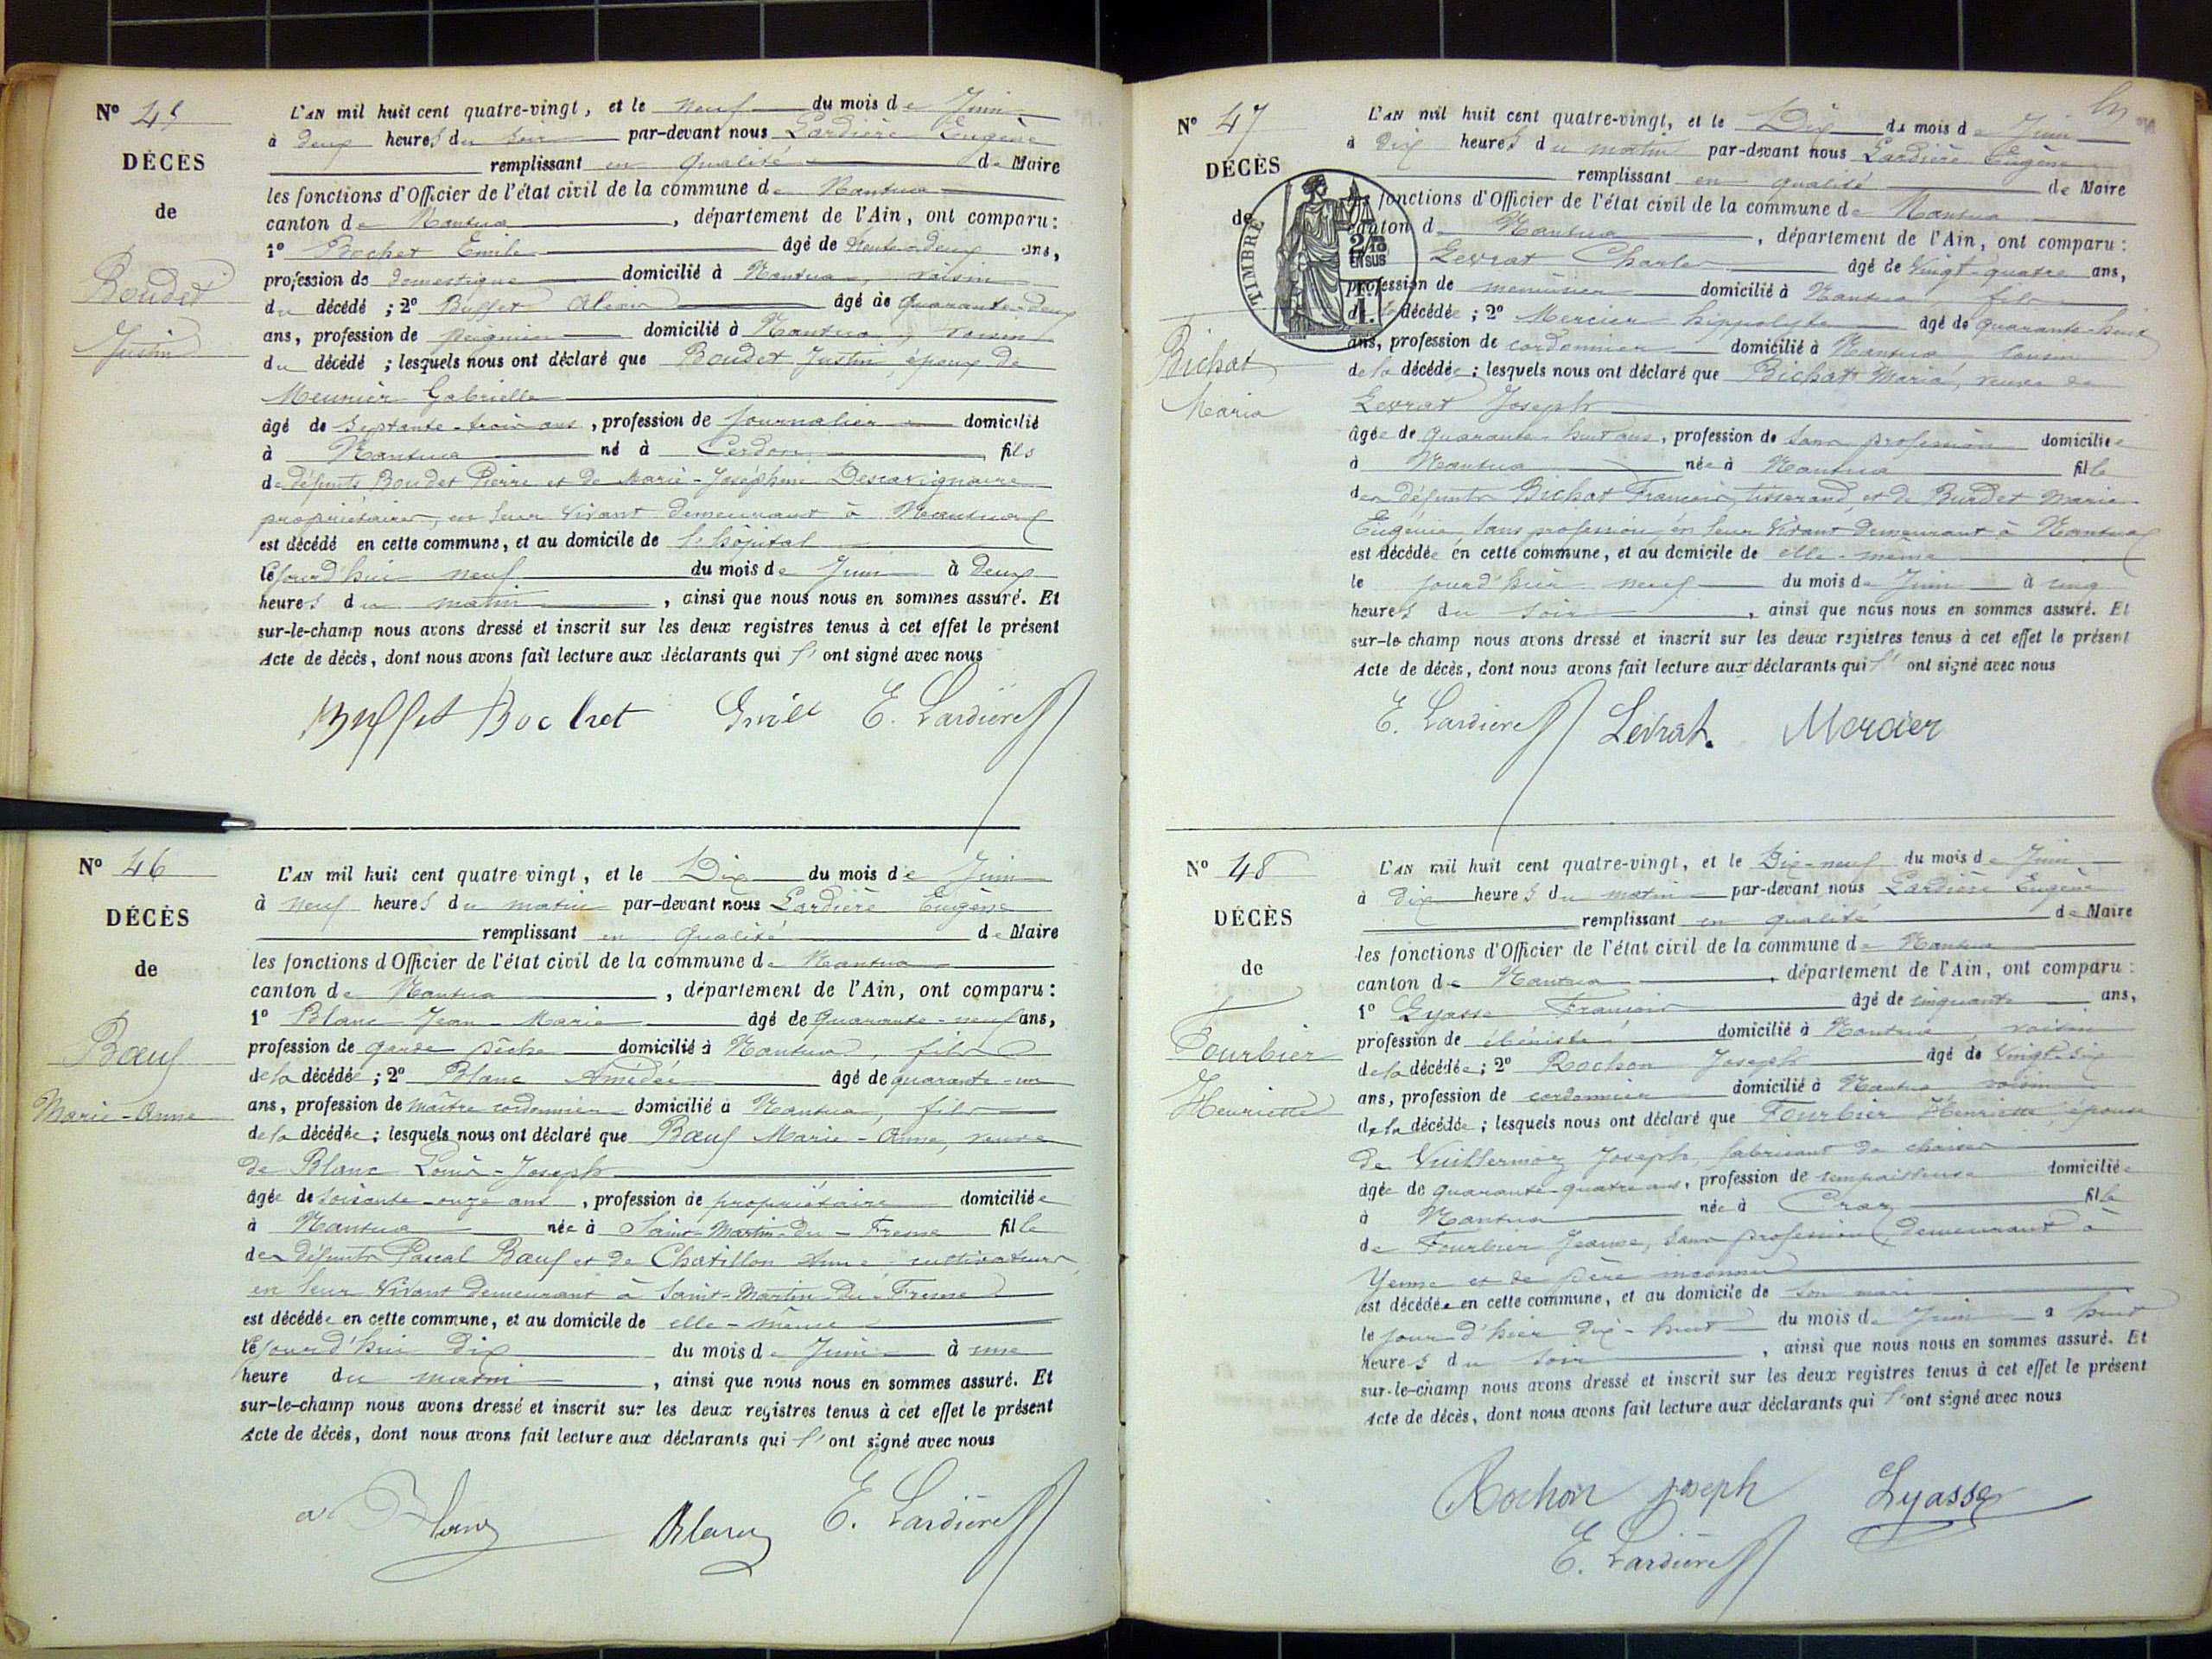 N° 45
DÉCÈS
de
Boudet
Justin
L'AN mil huit cent quatre-vingt, et le neuf du mois de Juin
à deux heures du soir par-devant nous Lardière Eugène
remplissant en qualité de Maire
les fonctions d'Officier de l'état civil de la commune de Nantua
canton de Nantua, département de l'Ain, ont comparu:
1° Bochet Emile âgé de trente-deux ans,
profession de domestique domicilié à Nantua, voisin
du décédé ; 2° Buffet Alexis âgé de quarante-deux
ans, profession de peignier domicilié à Nantua, voisin
du décédé ; lesquels nous ont déclaré que Boudet Justin, époux de
Meunier Gabrielle
âgé de septante-trois ans, profession de journalier domicilié
à Nantua né à Cerdon, fils
de défunts Boudet Pierre et de Marie-Joséphine
propriétaires, en leur vivant demeurant à Nantua
est décédé en cette commune, et au domicile de l'hôpital
le jourd'hui neuf du mois de Juin à deux
heures du matin, ainsi que nous nous en sommes assuré. Et
sur-le-champ nous avons dressé et inscrit sur les deux registres tenus à cet effet le présent
Acte de décès, dont nous avons fait lecture aux déclarants qui l' ont signé avec nous
Buffet Bochet Emile E. Lardière
N° 46
DÉCÈS
de
Bœuf
Marie-Anne
L'AN mil huit cent quatre-vingt, et le Dix du mois de Juin
à neuf heures du matin par-devant nous Lardière Eugène
remplissant en qualité de Maire
les fonctions d'Officier de l'état civil de la commune de Nantua
canton de Nantua, département de l'Ain, ont comparu:
1° Blanc Jean-Marie âgé de quarante-neuf ans,
profession de garde pêche domicilié à Nantua, fils
de la décédée ; 2° Blanc Amédée âgé de quarante-un
ans, profession de maître cordonnier domicilié à Nantua, fils
de la décédée ; lesquels nous ont déclaré que Bœuf Marie-Anne, veuve
de Blanc Louis-Joseph
âgée de soixante-onze ans, profession de propriétaire domiciliée
à Nantua née à Saint-Martin-du-Fresne fille
des défunts Pascal Bœuf et de Chatillon Anne cultivateurs,
en leur vivant demeurant à Saint-Martin-du-Fresne
est décédée en cette commune, et au domicile de elle-même
le jourd'hui dix du mois de Juin à une
heure du matin, ainsi que nous nous en sommes assuré. Et
sur-le-champ nous avons dressé et inscrit sur les deux registres tenus à cet effet le présent
Acte de décès, dont nous avons fait lecture aux déclarants qui l' ont signé avec nous
a Blanc Blanc E. Lardière
N° 47
DÉCÈS
de
TIMBRE
2/10
EN SUS
Bichat
Maria
L'AN mil huit cent quatre-vingt, et le Dix du mois de Juin
à dix heures du matin par-devant nous Lardière Eugène
remplissant en qualité de Maire
les fonctions d'Officier de l'état civil de la commune de Nantua
canton d Nantua, département de l'Ain, ont comparu:
Levrat Charles âgé de vingt-quatre ans,
profession de menuisier domicilié à Nantua, fils
de la décédée ; 2° Mercier hippolyte âgé de quarante-huit
ans, profession de cordonnier domicilié à Nantua cousin
de la décédée ; lesquels nous ont déclaré que Bichat Maria, veuve de
Levrat Joseph
âgée de quarante-huit ans, profession de sans profession domiciliée
à Nantua née à Nantua fille
des défunts Bichat François, tisserand, et de Burdet Marie-
Eugénie, sans profession, en leur vivant demeurant à Nantua
est décédée en cette commune, et au domicile de elle-même
le jour d'hier neuf du mois de Juin à cinq
heures du soir, ainsi que nous nous en sommes assuré. Et
sur-le champ nous avons dressé et inscrit sur les deux registres tenus à cet effet le présent
Acte de décès, dont nous avons fait lecture aux déclarants qui l' ont signé avec nous
E. Lardière Levrat. Mercier
N° 48
DÉCÈS
de
Fourbier
Henriette
L'AN mil huit cent quatre-vingt, et le Dix-neuf du mois de Juin
à dix heures du matin par-devant nous Lardière Eugène
remplissant en qualité de Maire
les fonctions d'Officier de l'état civil de la commune de Nantua
canton de Nantua, département de l'Ain, ont comparu:
1° Lyasse François âgé de cinquante ans,
profession de ébéniste domicilié à Nantua, voisin
de la décédée ; 2° Rochon Joseph âgé de vingt-six
ans, profession de cordonnier domicilié à Nantua voisin
de la décédée ; lesquels nous ont déclaré que Fourbier Henriette, épouse
de Vuillermoz Joseph, fabricant de chaises
âgée de quarante-quatre ans, profession de rempailleuse domiciliée
à Nantua née à Craz fille
de Fourbier Jeanne, sans profession, demeurant à
Yenne et de père inconnu
est décédée en cette commune, et au domicile de son mari
le jour d'hier dix-huit du mois de Juin à huit
heures du soir, ainsi que nous nous en sommes assuré. Et
sur-le-champ nous avons dressé et inscrit sur les deux registres tenus à cet effet le présent
Acte de décès, dont nous avons fait lecture aux déclarants qui l' ont signé avec nous
Rochon joseph Lyasse
E. Lardière